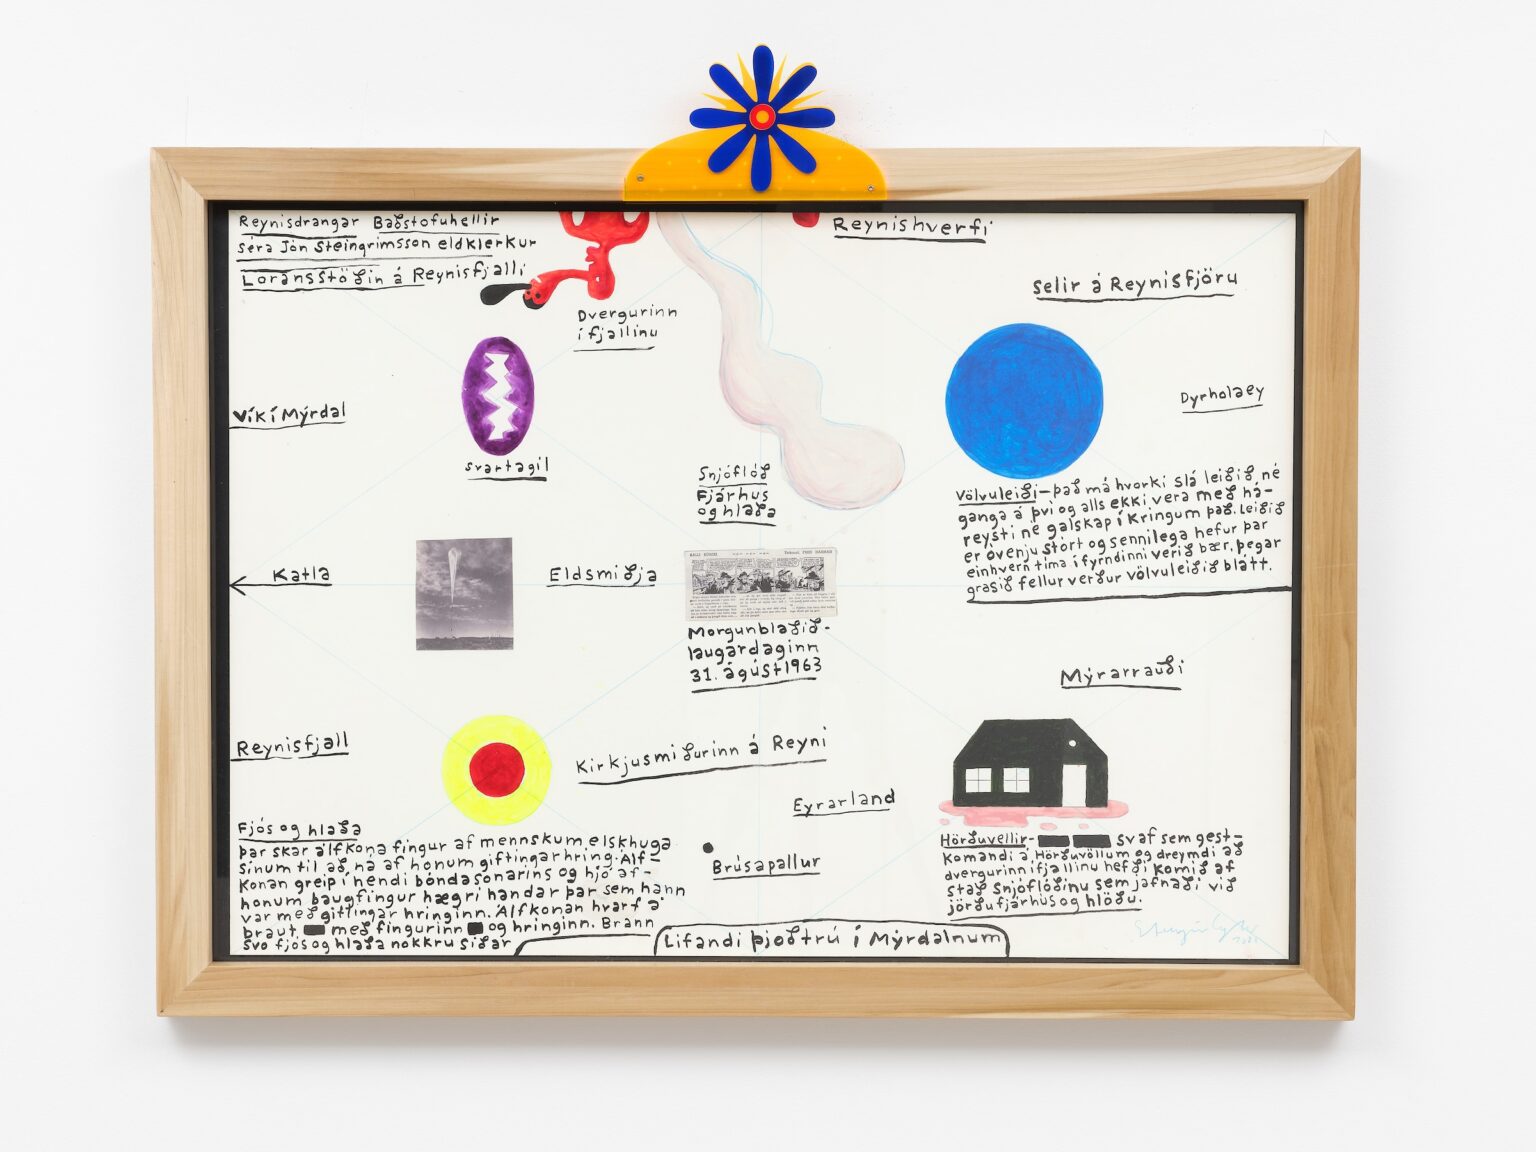 Reynisdrangar Baðstofuhellir
séra Jón Steingrimsson eldklerkur
Loransstöðin á Reynisfjalli
Dvergurinn
í fjallinu
Reynishverfi
Selir á Reynisfjöru
Vík í Mýrdal
svartagil
Dyrholaey
Snjóflóð
Fjárhus
og hlaða
Völvuleiði - það má hvorki slá leiðið né
ganga á því og alls ekki vera með há-
reysti né galskap í kringum það. Leiðið
er óvenju stórt og sennilega hefur þar
einhvern tima í fyrndinni verið bær, þegar
grasið fellur verður völvuleiðið blátt.
Katla
Eldsmiðja
Morgunblaðið -
laugardaginn
31. ágúst 1963
Mýrarrauði
Reynisfjall
Kirkjusmiðurinn á Reyni
Eyrarland
Fjós og hlaða
þar skar álfkona fingur af mennskum elskhuga
sinum til að ná af honum giftingarhring. Álf-
konan greip í hendi bóndasonarins og hjó af-
honum baugfingur hægri handar þar sem hann
var með giftingar hringinn. Álfkonan hvarf á
braut með fingurinn og hringinn. Brann
svo fjós og hlaða nokkru siðar
Brúsapallur
Hörðuvellir - svaf sem gest-
komandi á Hörðuvöllum og dreymdi að
dvergurinn í fjallinu hefði komið af
stað snjóflóðinu sem jafnaði við
jörðu fjárhus og hlöðu.
Lifandi þjoðtrú í Mýrdalnum